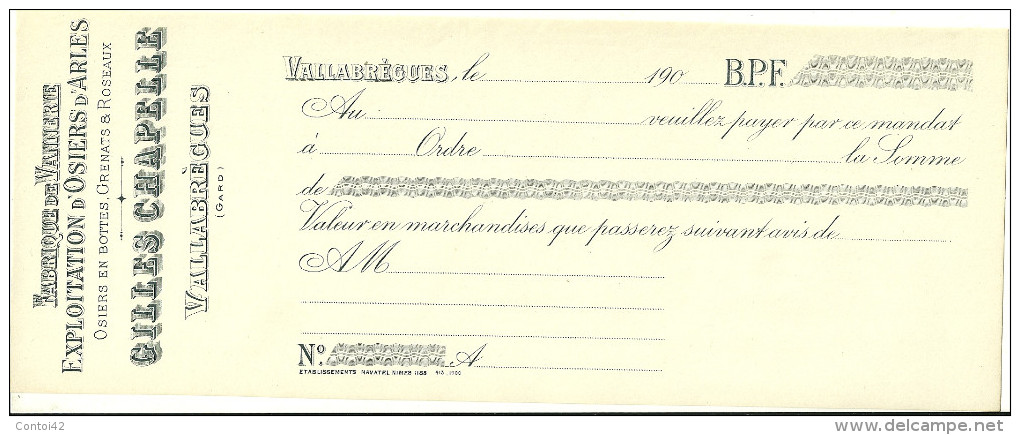 FABRIQUE DE VANNERIE
EXPLOITATION D'OSIERS D'ARLES
OSIERS EN BOTTES, GRENATS & ROSEAUX
GILLES CHAPELLE
VALLABRÈGUES
(GARD)
VALLABRÈGUES, le 190 B.P.F.
Au veuillez payer par ce mandat
à Ordre la Somme
de
Valeur en marchandises que passerez suivant avis de
A M
Nº A
ETABLISSEMENTS NAVATEL NIMES
Contoi42
www.delcampe.net